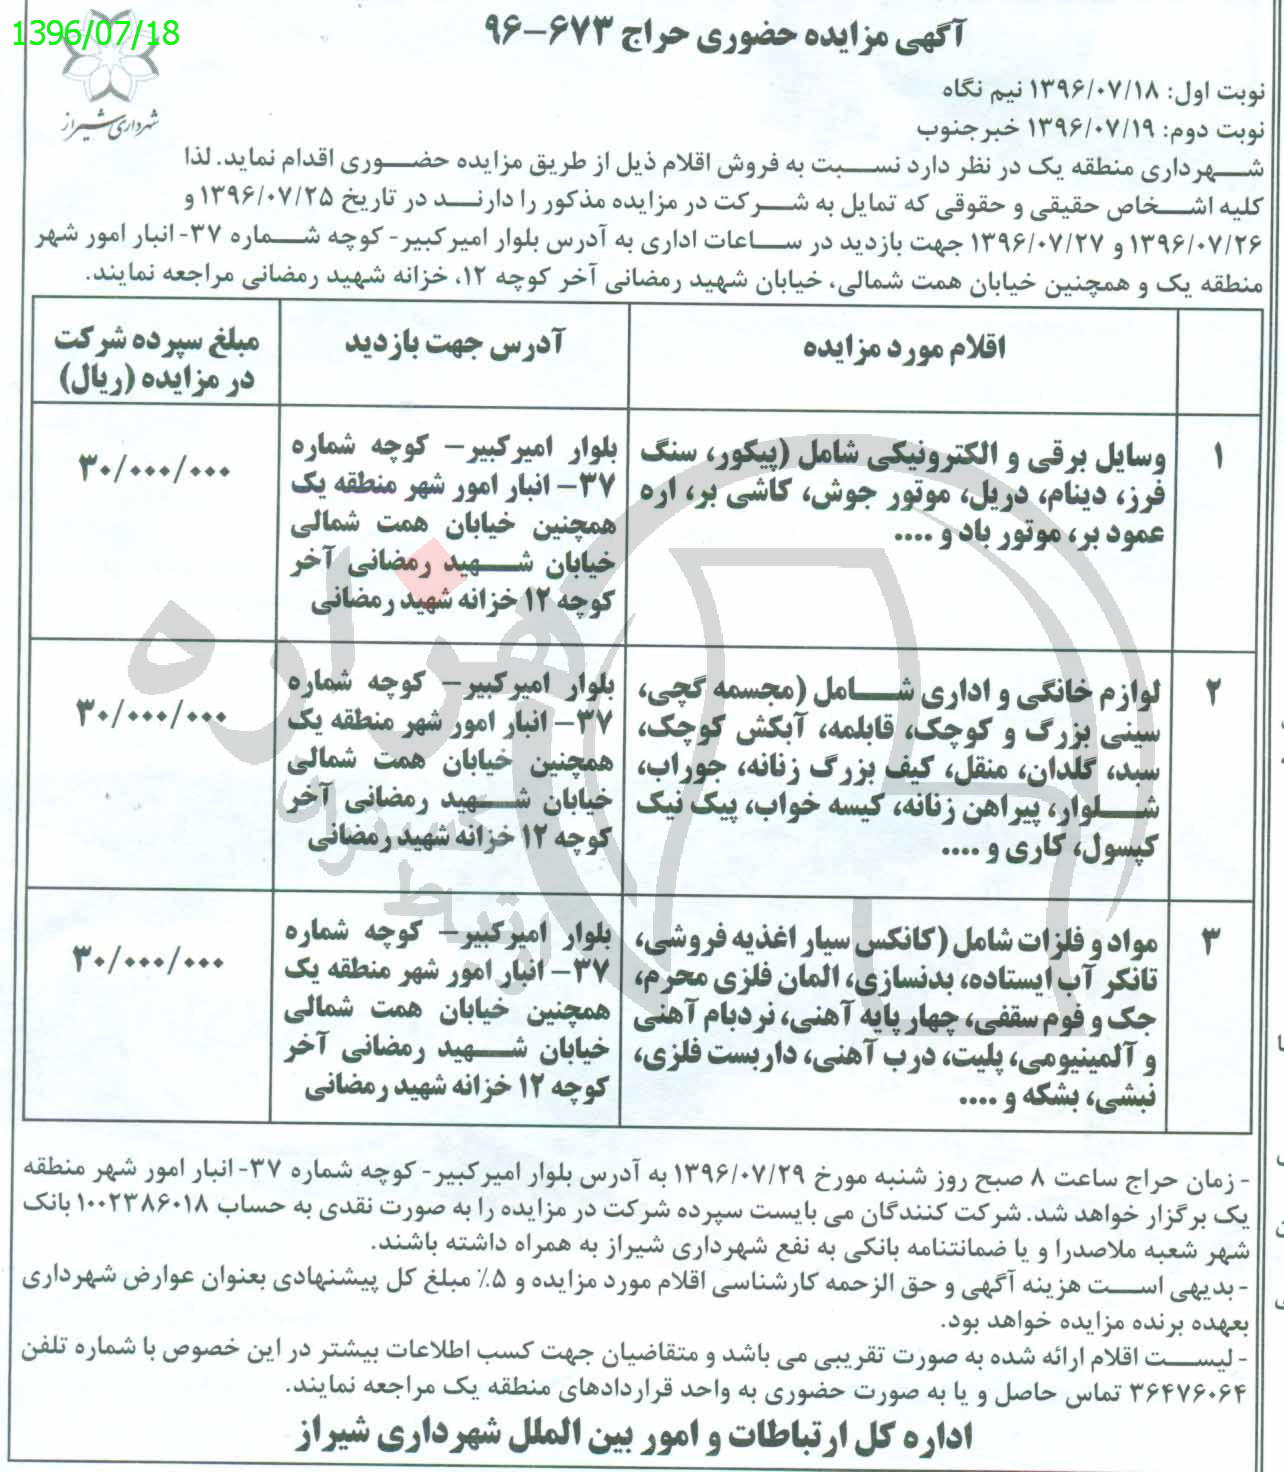 1396/07/18
آگهی مزایده حضوری حراج ۶۷۳-۹۶
شهرداری شیراز
نوبت اول: ۱۳۹۶/۰۷/۱۸ نیم نگاه
نوبت دوم: ۱۳۹۶/۰۷/۱۹ خبرجنوب
شهرداری منطقه یک در نظر دارد نسبت به فروش اقلام ذیل از طریق مزایده حضوری اقدام نماید. لذا
کلیه اشخاص حقیقی و حقوقی که تمایل به شرکت در مزایده مذکور را دارند در تاریخ ۱۳۹۶/۰۷/۲۵ و
۱۳۹۶/۰۷/۲۶ و ۱۳۹۶/۰۷/۲۷ جهت بازدید در ساعات اداری به آدرس بلوار امیرکبیر- کوچه شماره ۳۷- انبار امور شهر
منطقه یک و همچنین خیابان همت شمالی، خیابان شهید رمضانی آخر کوچه ۱۲، خزانه شهید رمضانی مراجعه نمایند.
اقلام مورد مزایده
آدرس جهت بازدید
مبلغ سپرده شرکت
در مزایده (ریال)
۱
وسایل برقی و الکترونیکی شامل (پیکور، سنگ
فرز، دینام، دریل، موتور جوش، کاشی بر، اره
عمود بر، موتور باد و ....
بلوار امیرکبیر– کوچه شماره
۳۷– انبار امور شهر منطقه یک
همچنین خیابان همت شمالی
خیابان شهید رمضانی آخر
کوچه ۱۲ خزانه شهید رمضانی
۳۰/۰۰۰/۰۰۰
۲
لوازم خانگی و اداری شامل (مجسمه گچی،
سینی بزرگ و کوچک، قابلمه، آبکش کوچک،
سبد، گلدان، منقل، کیف بزرگ زنانه، جوراب،
شلوار، پیراهن زنانه، کیسه خواب، پیک نیک
کپسول، گاری و ....
بلوار امیرکبیر– کوچه شماره
۳۷– انبار امور شهر منطقه یک
همچنین خیابان همت شمالی
خیابان شهید رمضانی آخر
کوچه ۱۲ خزانه شهید رمضانی
۳۰/۰۰۰/۰۰۰
۳
مواد و فلزات شامل (کانکس سیار اغذیه فروشی،
تانکر آب ایستاده، بدنسازی، المان فلزی محرم،
جک و فوم سقفی، چهار پایه آهنی، نردبام آهنی
و آلمینیومی، پلیت، درب آهنی، داربست فلزی،
نبشی، بشکه و ....
بلوار امیرکبیر– کوچه شماره
۳۷– انبار امور شهر منطقه یک
همچنین خیابان همت شمالی
خیابان شهید رمضانی آخر
کوچه ۱۲ خزانه شهید رمضانی
۳۰/۰۰۰/۰۰۰
هزاره
ارتباط
- زمان حراج ساعت ۸ صبح روز شنبه مورخ ۱۳۹۶/۰۷/۲۹ به آدرس بلوار امیرکبیر- کوچه شماره ۳۷- انبار امور شهر منطقه
یک برگزار خواهد شد. شرکت کنندگان می بایست سپرده شرکت در مزایده را به صورت نقدی به حساب ۱۰۰۲۳۸۶۰۱۸ بانک
شهر شعبه ملاصدرا و یا ضمانتنامه بانکی به نفع شهرداری شیراز به همراه داشته باشند.
- بدیهی است هزینه آگهی و حق الزحمه کارشناسی اقلام مورد مزایده و ۵٪ مبلغ کل پیشنهادی بعنوان عوارض شهرداری
بعهده برنده مزایده خواهد بود.
- لیست اقلام ارائه شده به صورت تقریبی می باشد و متقاضیان جهت کسب اطلاعات بیشتر در این خصوص با شماره تلفن
۳۶۴۷۶۰۶۴ تماس حاصل و یا به صورت حضوری به واحد قراردادهای منطقه یک مراجعه نمایند.
اداره کل ارتباطات و امور بین الملل شهرداری شیراز